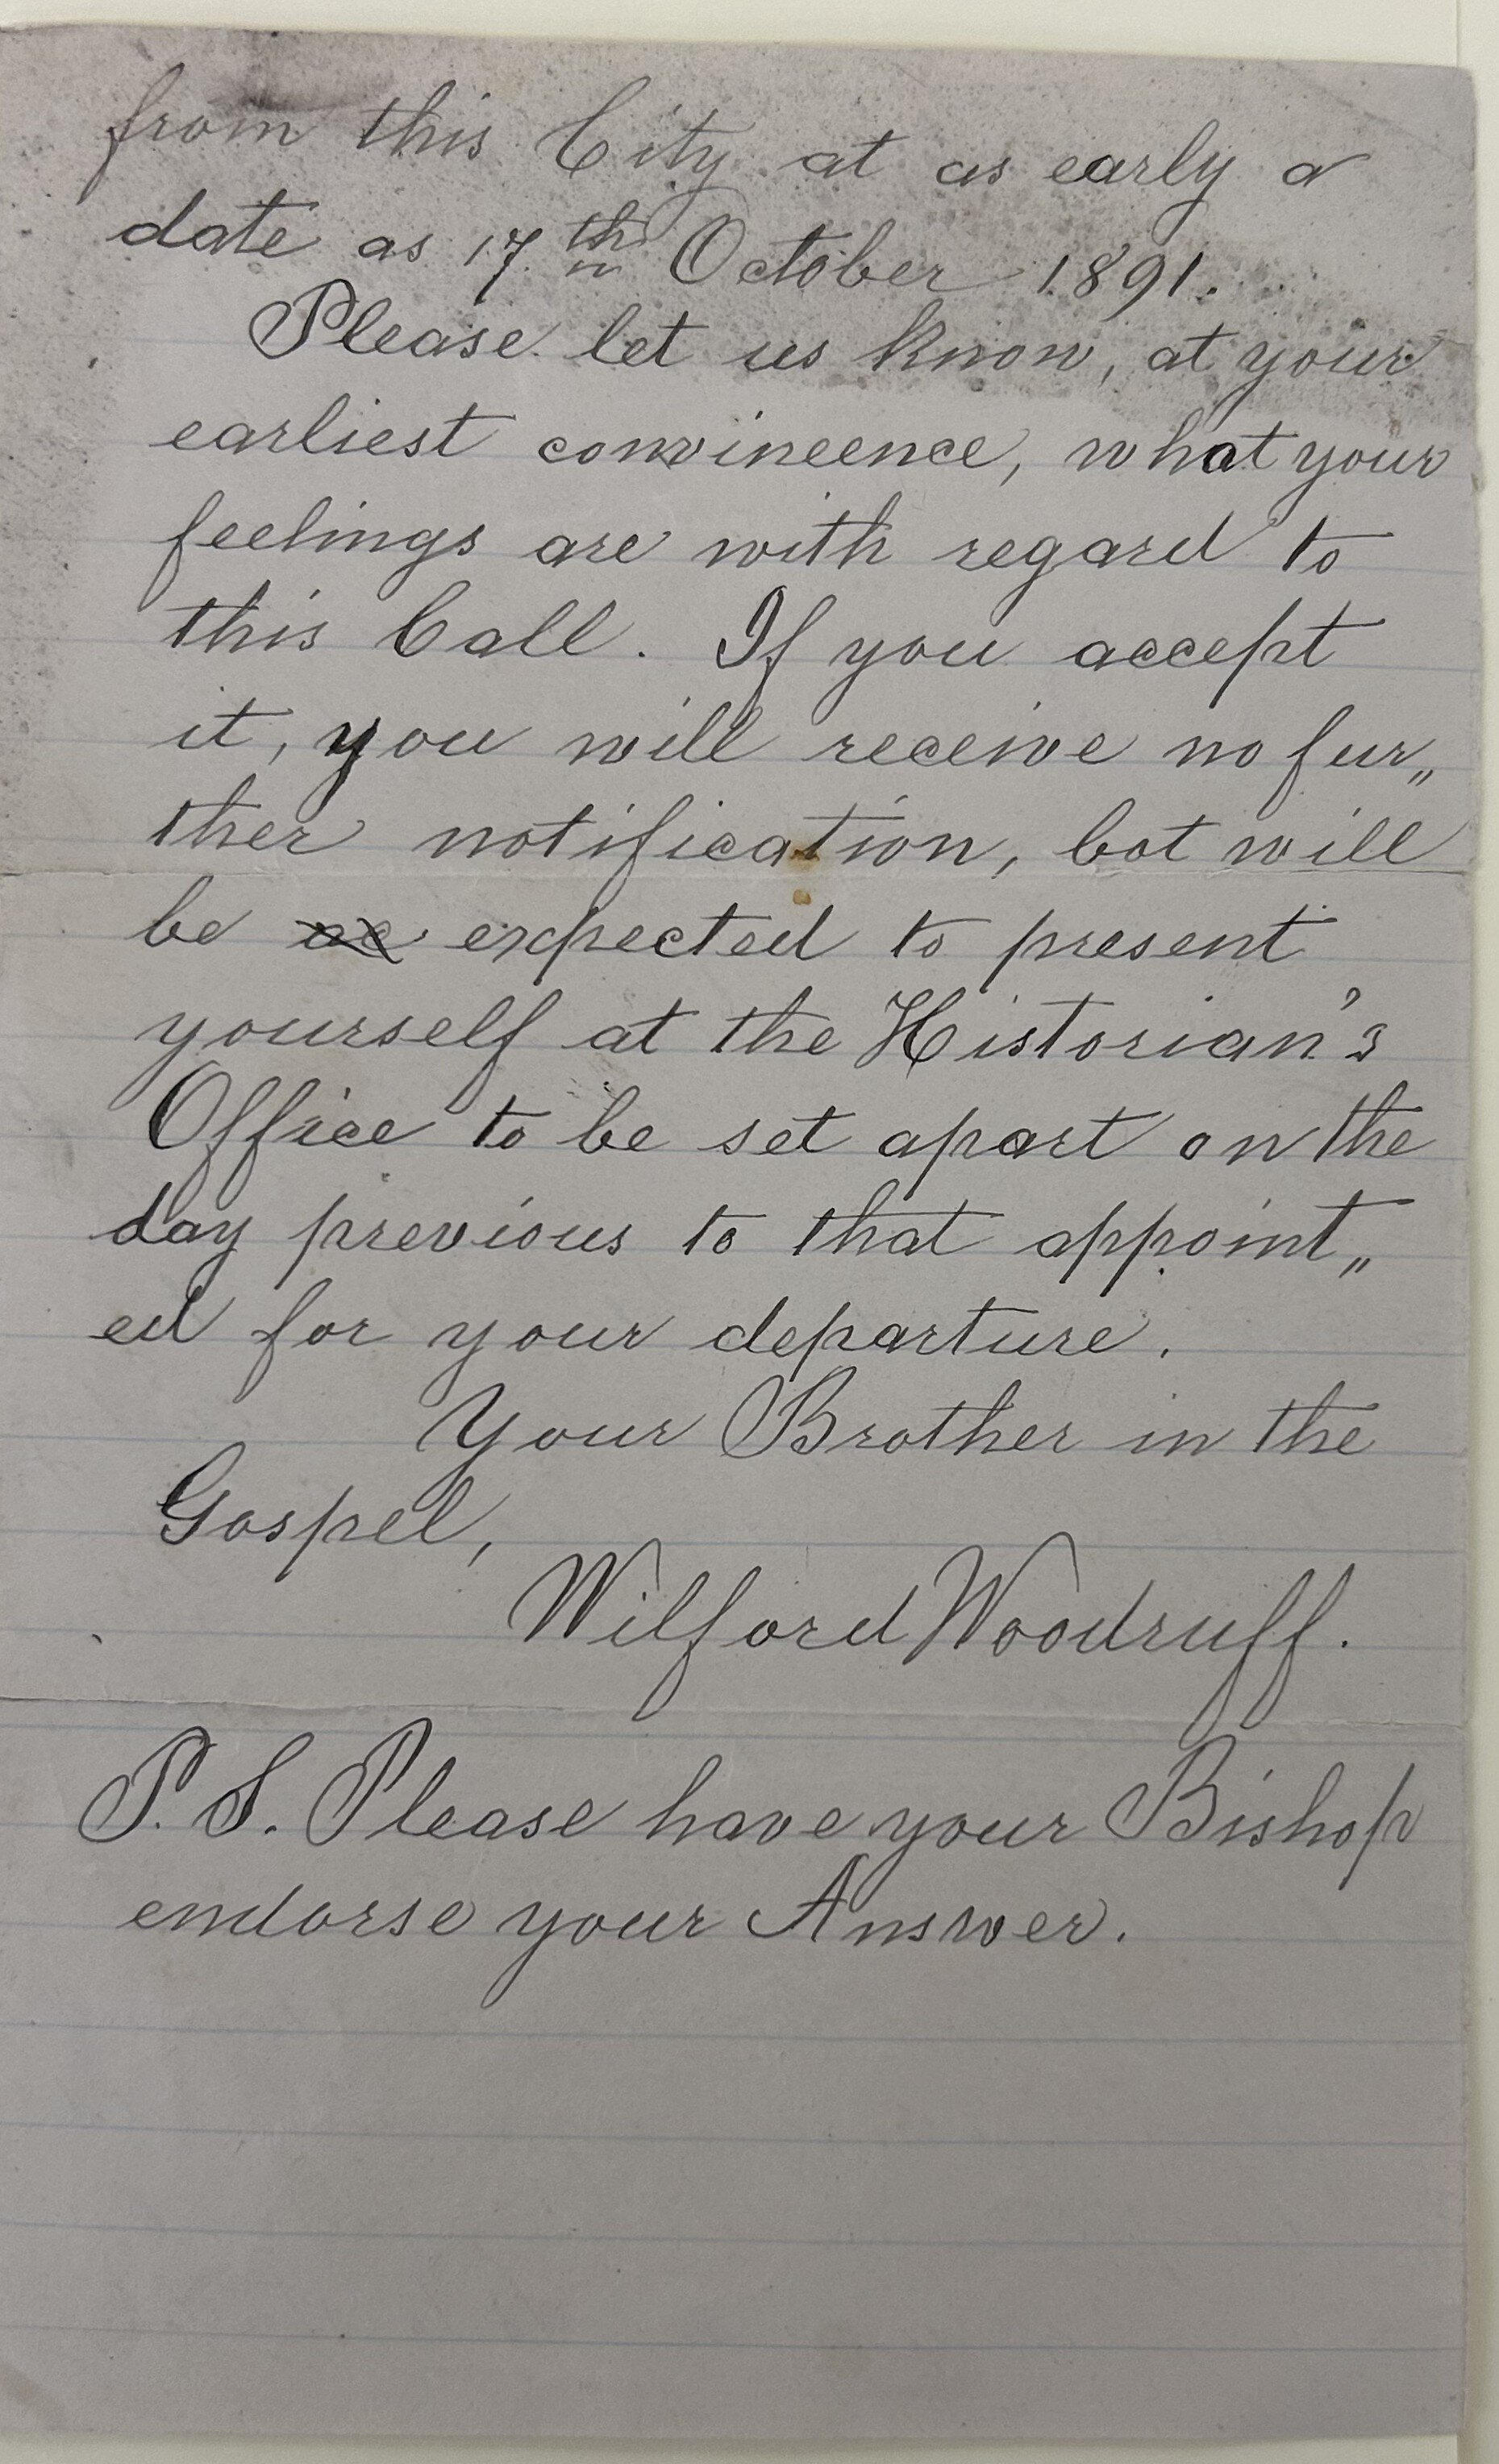 from this City at as early a
date as 17th October 1891.
Please let us know, at your
earliest convineence, what your
feelings are with regard to
this Call. If you accept
it, you will receive no fur„
ther notification, bot will
be expected to present
yourself at the Historian's
Office to be set apart on the
day previous to that appoint„
ed for your departure.
Your Brother in the
Gospel,
Wilford Woodruff.
P. S. Please have your Bishop
endorse your Answer.